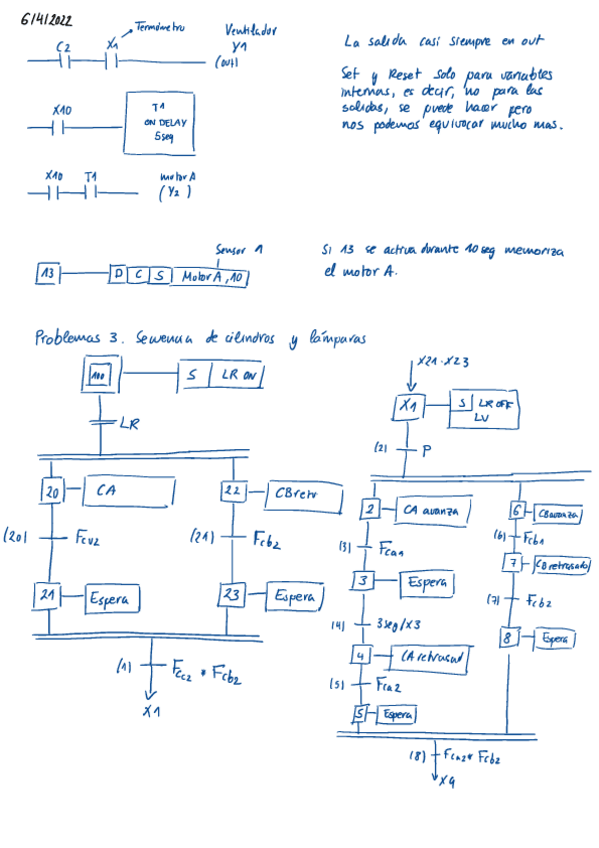 6/4/2022
Termómetro
C2 X1
Ventilador
Y1
(out)
La salida casi siempre en out
Set y Reset solo para variables
internas, es decir, no para las
salidas, se puede hacer pero
nos podemos equivocar mucho mas.
X10
T1
ON DELAY
5seg
X10 T1
motor A
(Y2)
Sensor 1
13 D C S Motor A, 10
Si 13 se activa durante 10 seg memoriza
el motor A.
Problemas 3. Secuencia de cilindros y lámparas
100 S LR ON
LR
20 CA
22 CBretr
(20) Fcv2
(21) Fcb2
21 Espera
23 Espera
(1) Fcc2 * Fcb2
X1
X21·X23
X1 S LR OFF
LV
(2) P
2 CA avanza
6 CBavanza
(3) Fca1
(6) Fcb1
3 Espera
7 CBretrasado
(4) 3seg/X3
(7) Fcb2
4 CA retrasad
8 Espera
(5) Fca2
5 Espera
(8) Fca2* Fcb2
X9